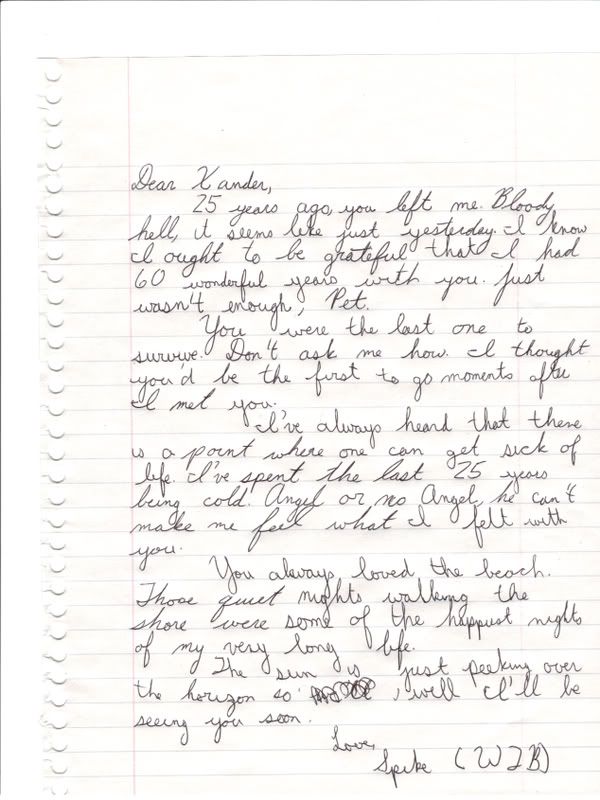 Dear Xander,
25 years ago, you left me. Bloody
hell, it seems like just yesterday. I know
I ought to be grateful that I had
60 wonderful years with you. Just
wasn't enough, Pet.
You were the last one to
survive. Don't ask me how. I thought
you'd be the first to go moments after
I met you.
I've always heard that there
is a point where one can get sick of
life. I've spent the last 25 years
being cold. Angel or no Angel, he can't
make me feel what I felt with
you.
You always loved the beach.
Those quiet nights walking the
shore were some of the happiest nights
of my very long life.
The sun is just peeking over
the horizon so , will I'll be
seeing you soon.
Love,
Spike (WTB)